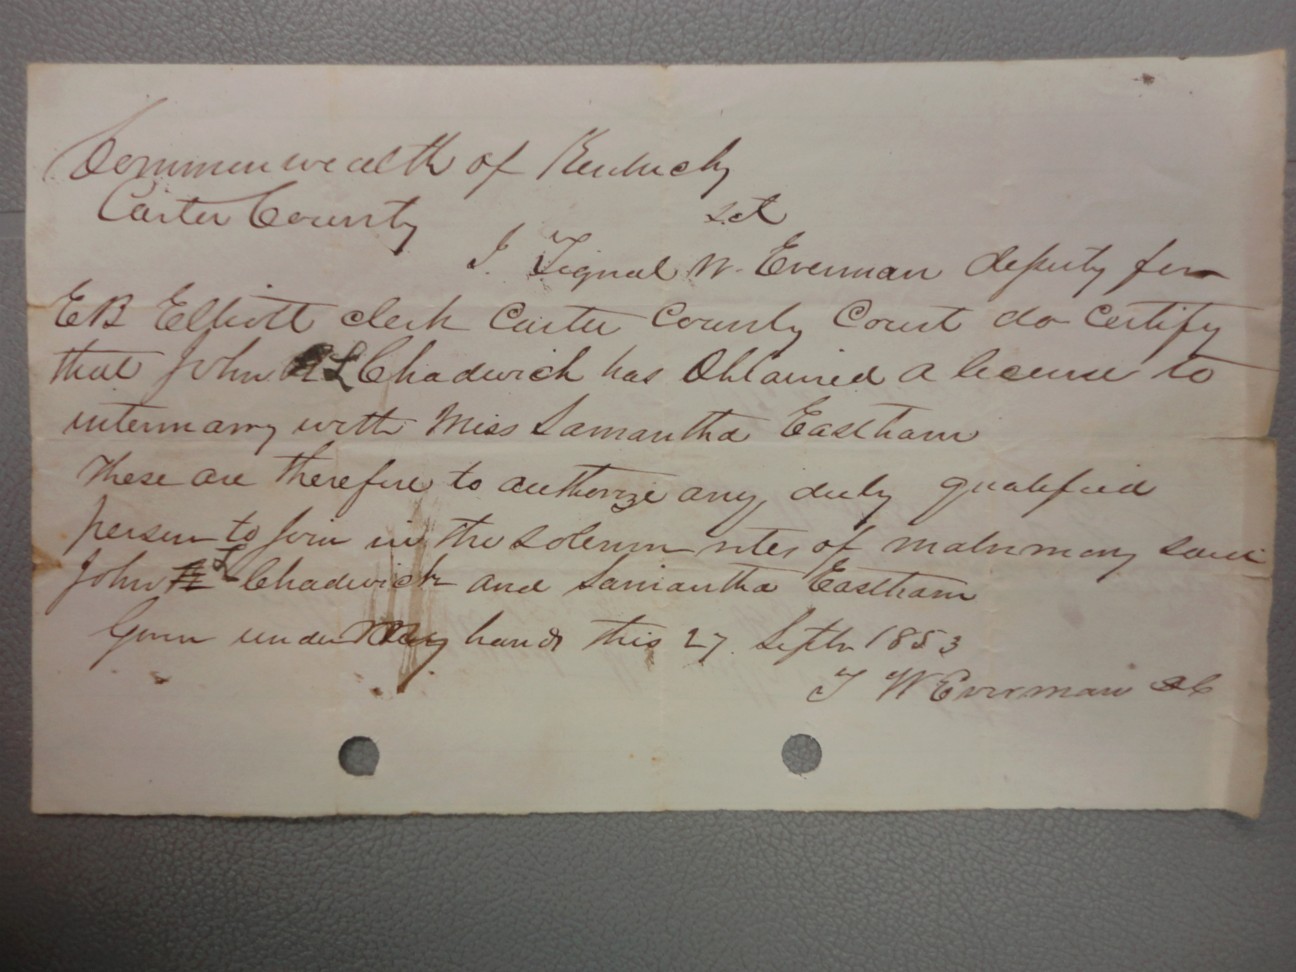 Commonwealth of Kentucky
Carter County sct
I. Tignal W. Everman deputy for
EB Elliott clerk Carter County Court do certify
that John L Chadwick has Obtained a license to
intermarry with Miss Samantha Eastham
These are therefore to authorize any duly qualified
person to Join in the solemn rites of matrimony said
John L Chadwick and Samantha Eastham
Given under my hand this 27 Septr 1853
T W Everman DC